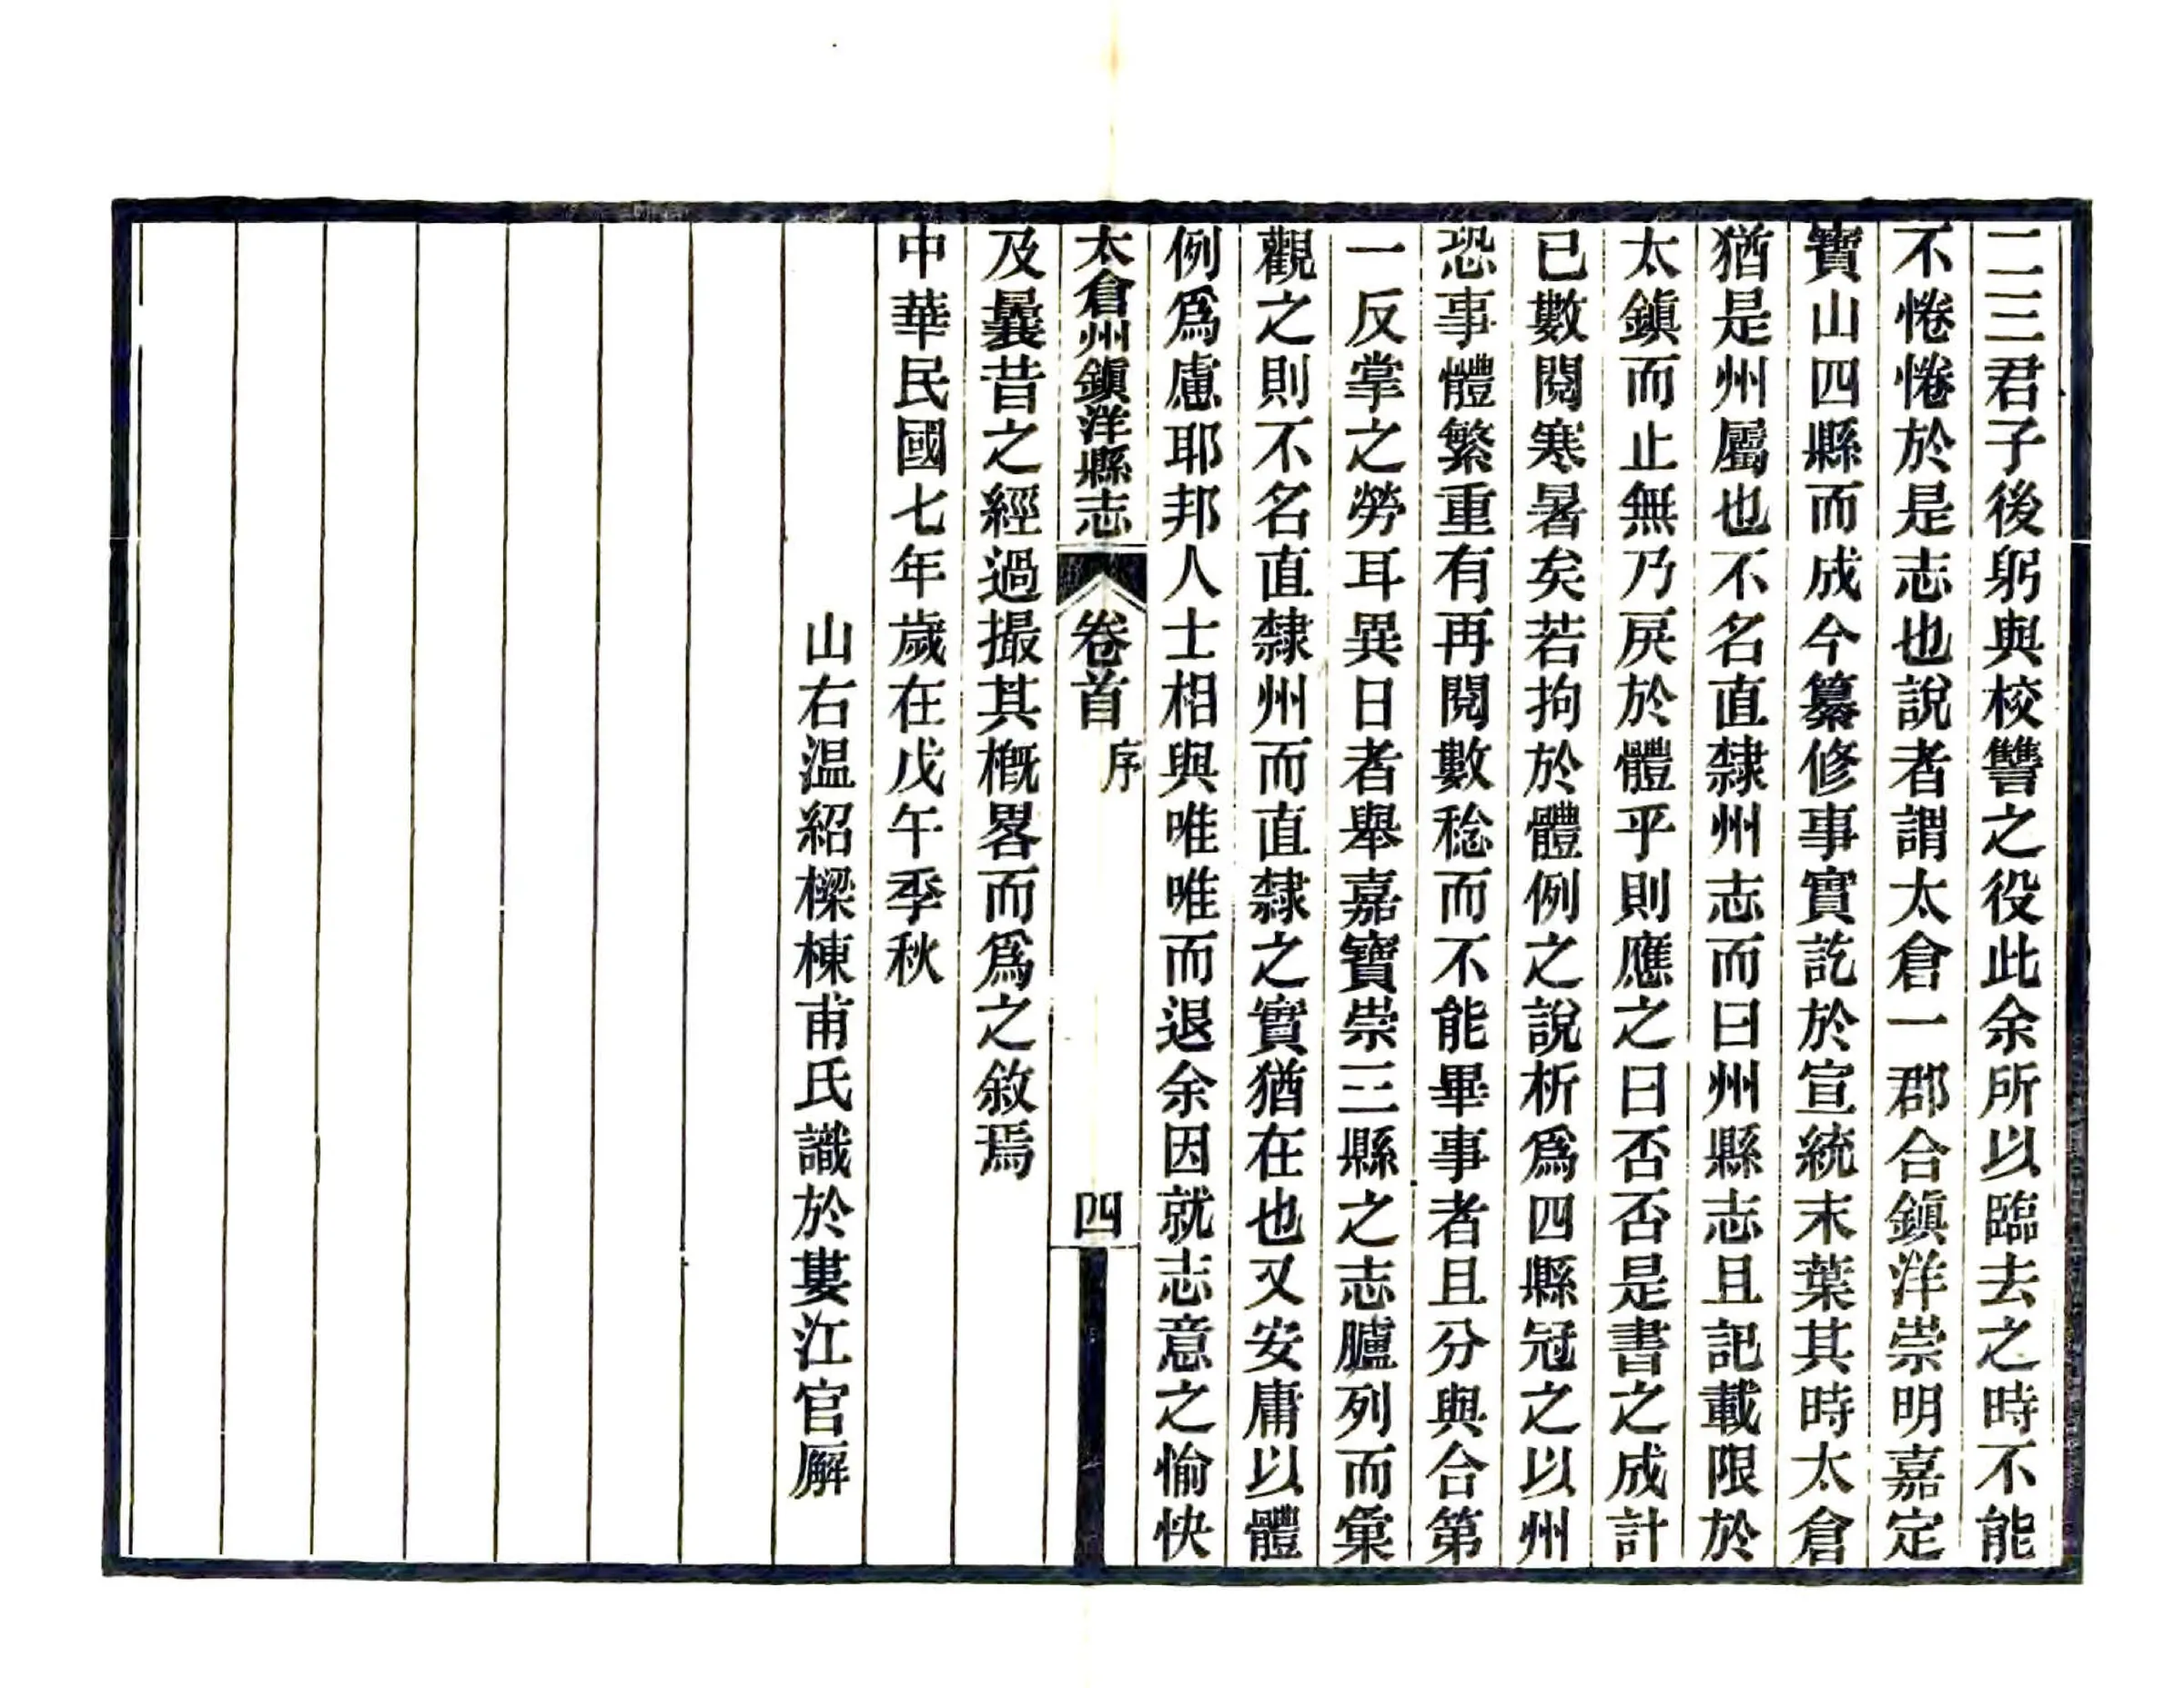 二三君子後躬與校讐之役此余所以臨去之時不能
不惓惓於是志也說者謂太倉一郡合鎭洋崇明嘉定
寶山四縣而成今纂修事實訖於宣統末葉其時太倉
猶是州屬也不名直隸州志而曰州縣志且記載限於
太鎭而止無乃戾於體乎則應之曰否否是書之成計
已數閱寒暑矣若拘於體例之說析爲四縣冠之以州
恐事體繁重有再閱數稔而不能畢事者且分與合第
一反掌之勞耳異日者舉嘉寶崇三縣之志臚列而彙
觀之則不名直隸州而直隸之實猶在也又安庸以體
例爲慮耶邦人士相與唯唯而退余因就志意之愉快
太倉州鎭洋縣志 卷首 序 四
及曩昔之經過撮其槪畧而爲之敘焉
中華民國七年歲在戊午季秋
山右温紹樑棟甫氏識於婁江官廨